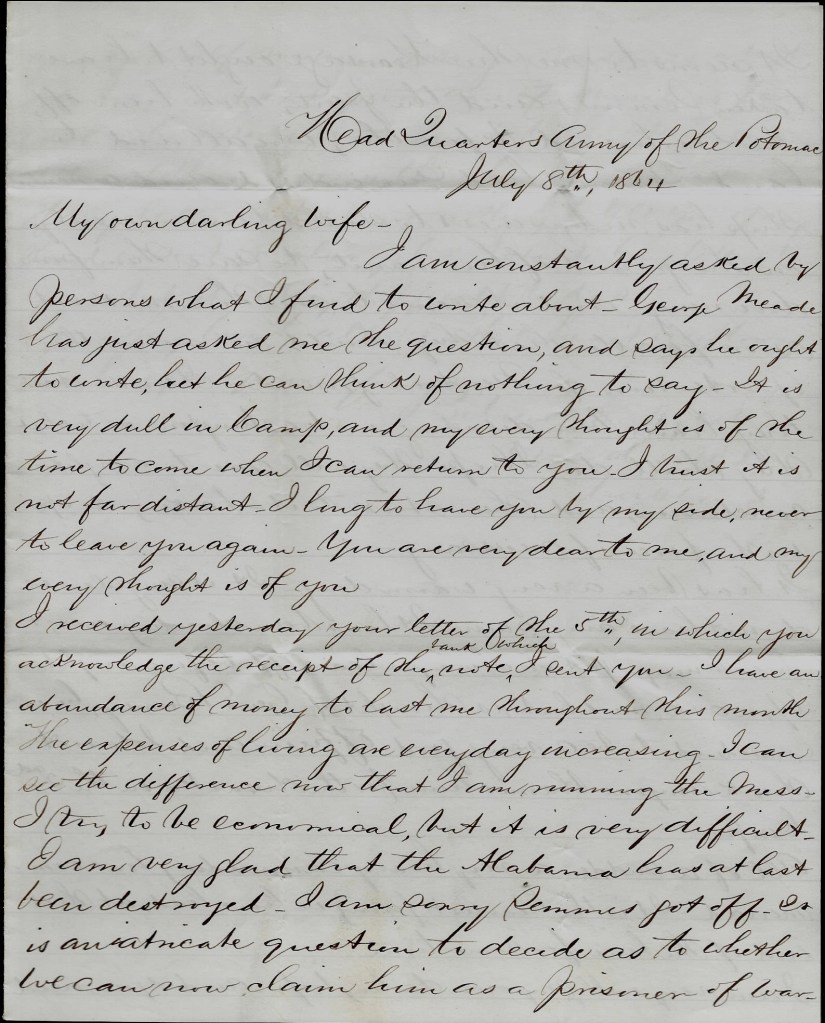 Head Quarters Army of the Potomac
July 8th, 1864
My own darling wife-
I am constantly asked by
persons what I find to write about- George Meade
has just asked me the question, and says he ought
to write, but he can think of nothing to say- It is
very dull in Camp, and my every thought is of the
time to come when I can return to you- I trust it is
not far distant- I long to have you by my side, never
to leave you again- You are very dear to me, and my
every thought is of you
I received yesterday your letter of the 5th, in which you
bank which
acknowledge the receipt of the note I sent you- I have an
abundance of money to last me throughout this month
The expenses of living are everyday increasing- I can
see the difference now that I am running the Mess-
I try to be economical, but it is very difficult-
I am very glad that the Alabama has at last
been destroyed- I am sorry Semmes got off- It
is an intricate question to decide as to whether
we can now claim him as a prisoner of war-